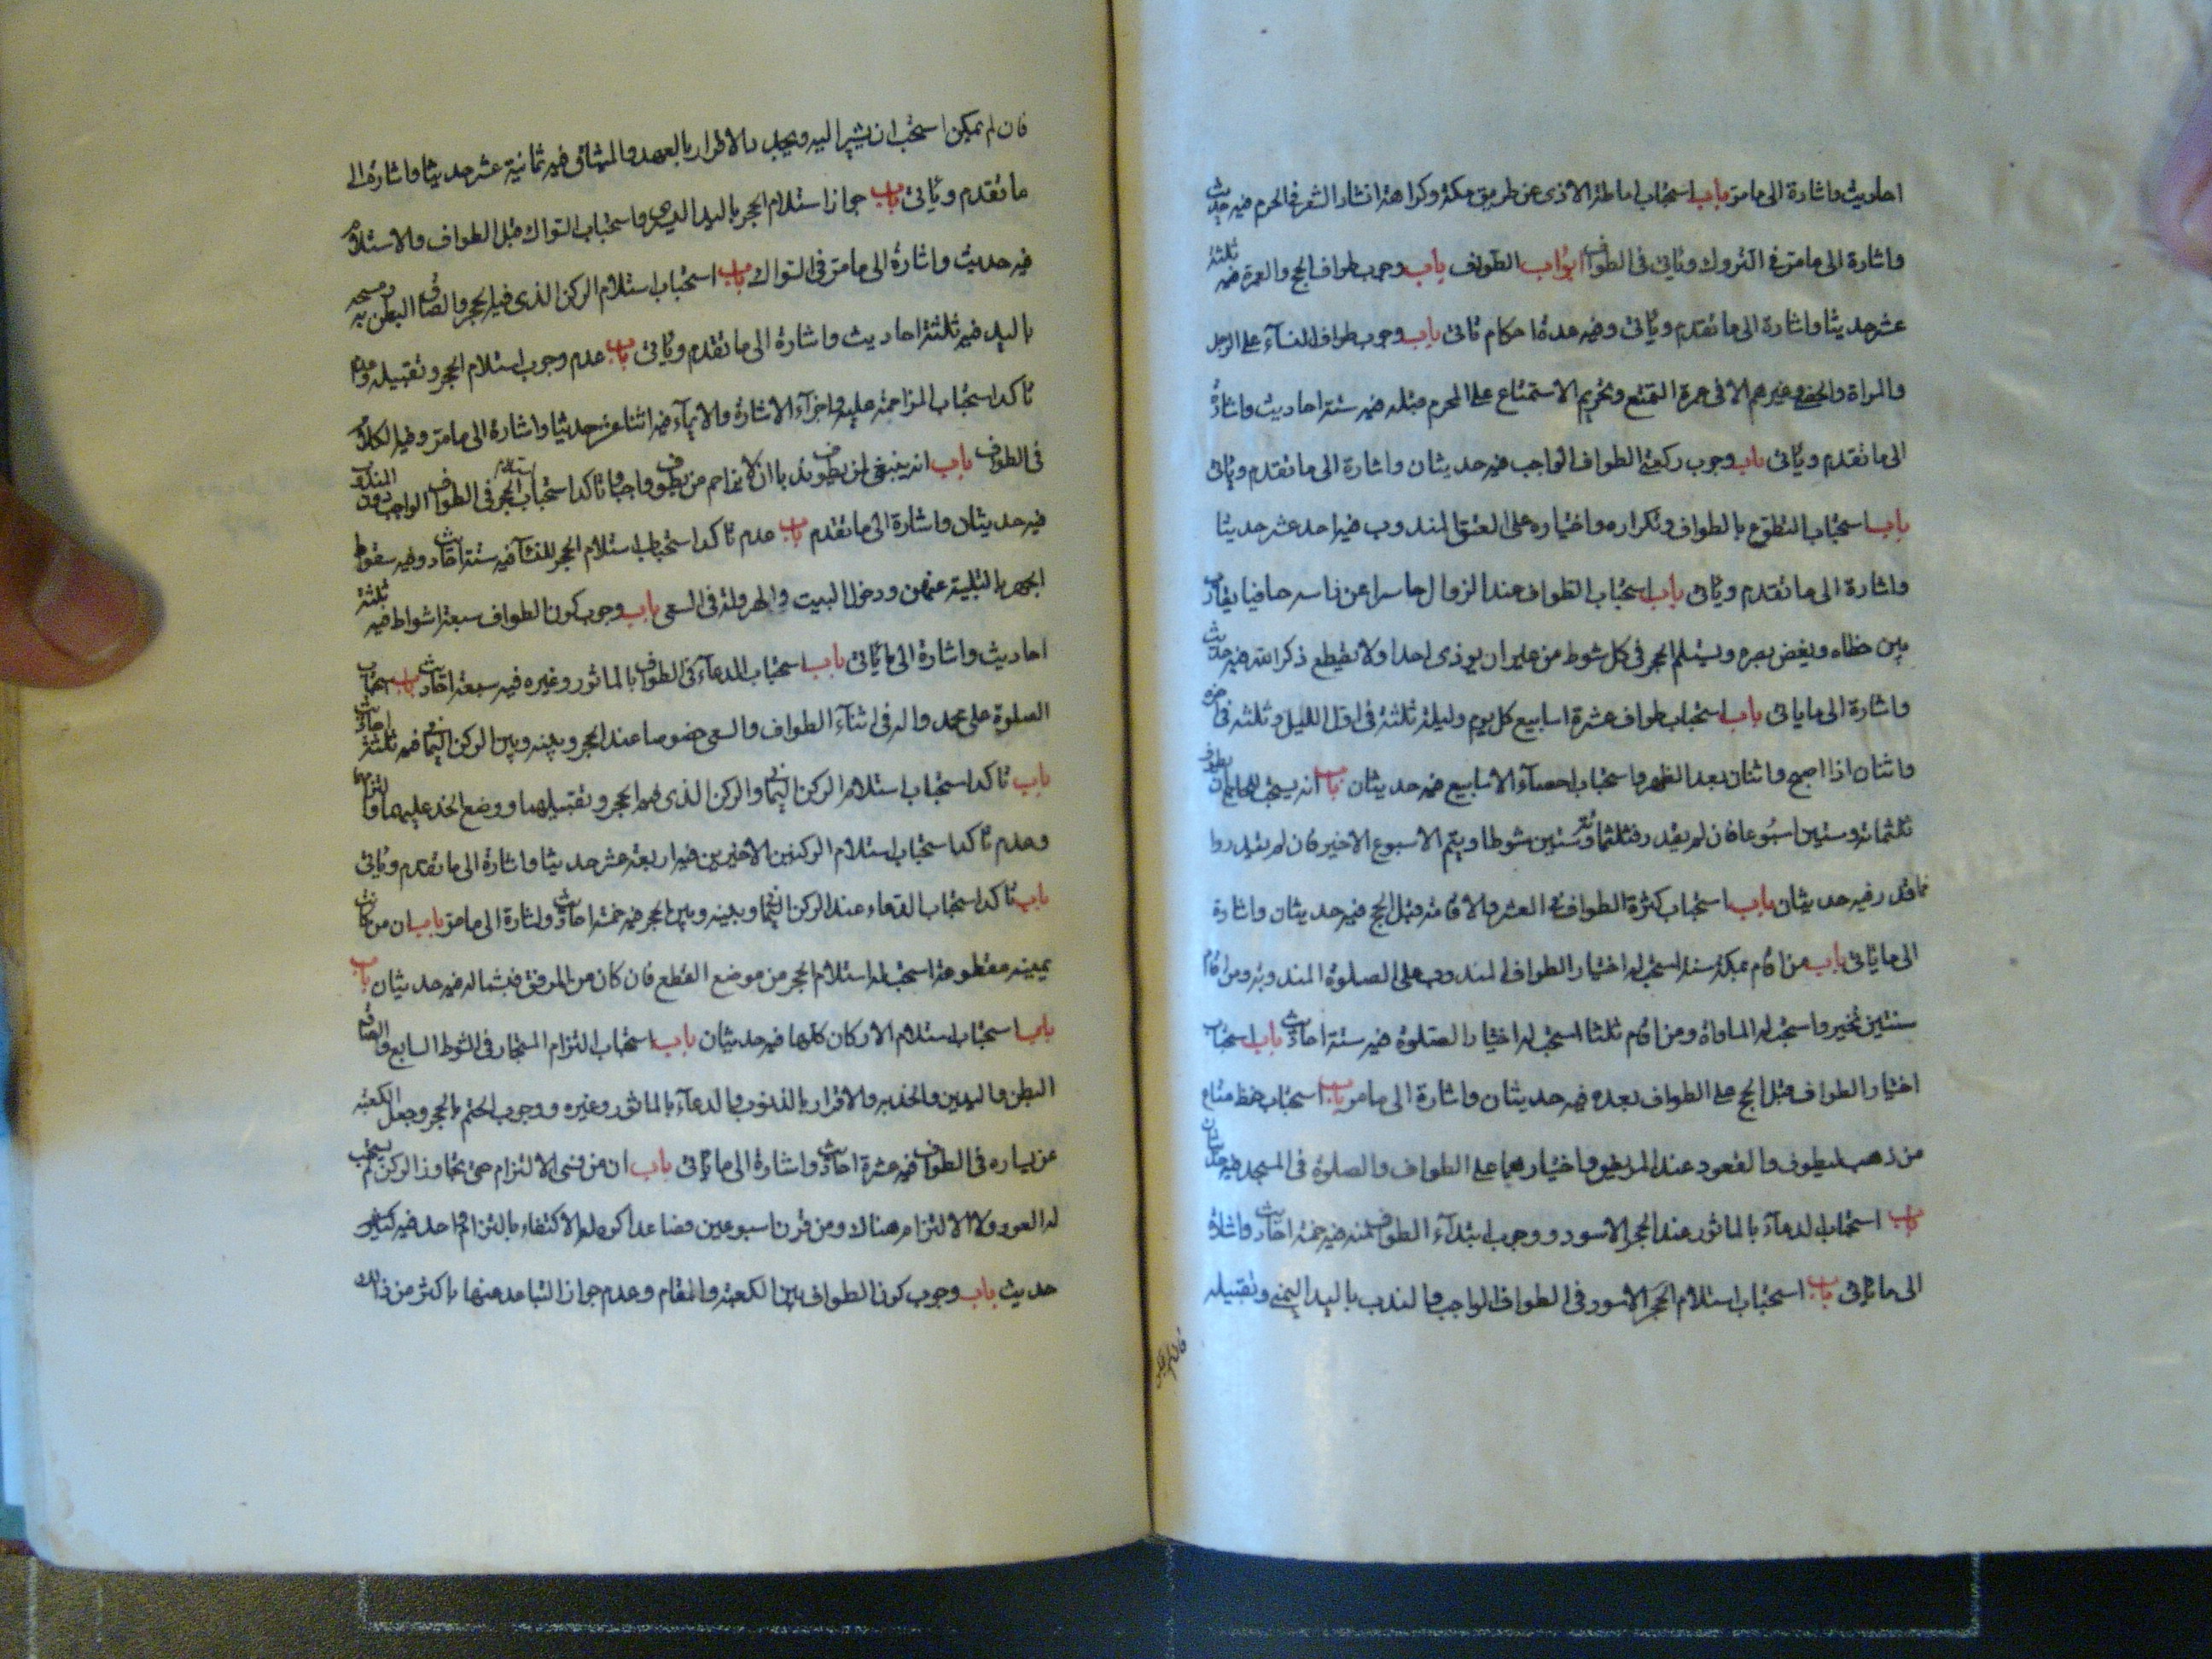 احاديث واشارة الى ما مر باب استحباب اماطة الاذى عن طريق مكة وكراهة انشاد الشعر في الحرم فيه حديث
واشارة الى ما مر في التروك وياتى فى الطواف ابواب الطواف باب وجوب طواف الحج والعمرة فيه ثلثة
عشر حديثا واشارة الى ما تقدم وياتى وفيه عدة احكام تاتى باب وجوب طواف النسآء على الرجل
والمراة والخصى وغيرهم الا فى عمرة التمتع وتحريم الاستمتاع على المحرم قبله فيه ستة احاديث واشارة
الى ما تقدم وياتى باب وجوب ركعتى الطواف الواجب فيه حديثان واشارة الى ما تقدم وياتى
باب استحباب التطوع بالطواف وتكراره واختياره على العتق المندوب فيه احد عشر حديثا
واشارة الى ما تقدم وياتى باب استحباب الطواف عند الزوال حاسرا عن راسه حافيا يقارب
بين خطاه ويغض بصره ويستلم الحجر فى كل شوط من غير ان يوذى احدا ولا يقطع ذكر الله فيه حديث
واشارة الى ما ياتى باب استحباب طواف عشرة اسابيع كل يوم وليلة ثلثة فى اول الليل وثلثة فى اخره
واثنان اذا اصبح واثنان بعد الظهر واستحباب احصآء الاسابيع فيه حديثان باب انه يستحب للحاج ان يطوف
ثلثمائة وستين اسبوعا فان لم يقدر فثلثمائة وستين شوطا ويتم الاسبوع الاخير فان لم يقدر
فما قدر فيه حديثان باب استحباب كثرة الطواف فى العشر والاقامة قبل الحج فيه حديثان واشارة
الى ما ياتى باب من اقام بمكة سنة استحب له اختيار الطواف المندوب على الصلوة المندوبة ومن اقام
سنتين تخير واستحب له المساواة ومن اقام ثلثا استحب له اختيار الصلوة فيه ستة احاديث باب استحباب
اختيار الطواف قبل الحج على الطواف بعده فيه حديثان واشارة الى ما مر باب استحباب حفظ متاع
من ذهب ليطوف والقعود عند المريض واختيارهما على الطواف والصلوة فى المسجد فيه حديثان
باب استحباب الدعآء بالماثور عند الحجر الاسود ووجوب ابتدآء الطواف منه فيه خمسة احاديث واشارة
الى ما ياتى باب استحباب استلام الحجر الاسود فى الطواف الواجب والندب باليد اليمنى وتقبيله
فان لم يمكن
فان لم يمكن استحب ان يشير اليه ويجدد الاقرار بالعهد والميثاق فيه ثمانية عشر حديثا واشارة الى
ما تقدم وياتى باب جواز استلام الحجر باليد اليسرى واستحباب السواك قبل الطواف والاستلام
فيه حديث واشارة الى ما مر فى السواك باب استحباب استلام الركن الذى فيه الحجر والصاق البطن به ومسحه
باليد فيه ثلثة احاديث واشارة الى ما تقدم وياتى باب عدم وجوب استلام الحجر وتقبيله وعدم
تاكد استحباب المزاحمة عليه واجزآء الاشارة والايمآء فيه اثنا عشر حديثا واشارة الى ما مر وفيه الكلام
فى الطواف باب انه ينبغى لمن يطوف ندبا ان لا يزاحم من يطوف واجبا وتاكد استحباب استلام الحجر فى الطواف الواجب دون المندوب
فيه حديثان واشارة الى ما تقدم باب عدم تاكد استحباب استلام الحجر للنسآء فيه ستة احاديث وفيه سقوط
الجهر بالتلبية عنهن ودخول البيت والهرولة فى السعى باب وجوب كون الطواف سبعة اشواط فيه ثلثة
احاديث واشارة الى ما ياتى باب استحباب الدعآء فى الطواف بالماثور وغيره فيه سبعة احاديث باب استحباب
الصلوة على محمد واله فى اثنآء الطواف والسعى خصوصا عند الحجر وبينه وبين الركن اليمانى فيه ثلثة احاديث
باب تاكد استحباب استلام الركن اليمانى والركن الذى فيه الحجر وتقبيلهما ووضع الخد عليهما والتزامهما
وعدم تاكد استحباب استلام الركنين الاخيرين فيه اربعة عشر حديثا واشارة الى ما تقدم وياتى
باب تاكد استحباب الدعاء عند الركن اليمانى وبينه وبين الحجر فيه خمسة احاديث واشارة الى ما مر باب ان من كانت
يمينه مقطوعة استحب له استلام الحجر من موضع القطع فان كان من المرفق فبشماله فيه حديثان باب
باب استحباب استلام الاركان كلها فيه حديثان باب استحباب التزام المستجار فى الشوط السابع والصاق
البطن واليدين والخد به والاقرار بالذنوب والدعآء بالماثور وغيره ووجوب الختم بالحجر وجعل الكعبة
عن يساره فى الطواف فيه عشرة احاديث واشارة الى ما ياتى باب ان من نسى الالتزام حتى تجاوز الركن لم يستحب
له العود ولا الالتزام هناك ومن قرن اسبوعين فصاعدا كره له الاكتفاء بالتزام واحد فيه
حديث باب وجوب كون الطواف بين الكعبة والمقام وعدم جواز التباعد عنها باكثر من ذلك